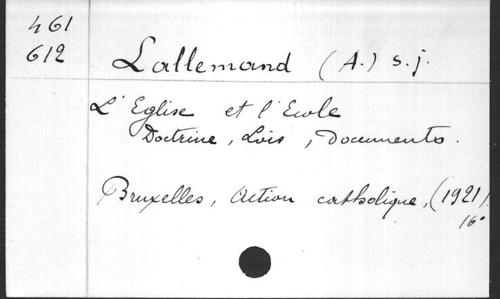 461
612
Lallemand (A.) s.j.
L'Eglise et l'Ecole
Doctrine, Lois, Documents.
Bruxelles, Action catholique, (1921).
16°